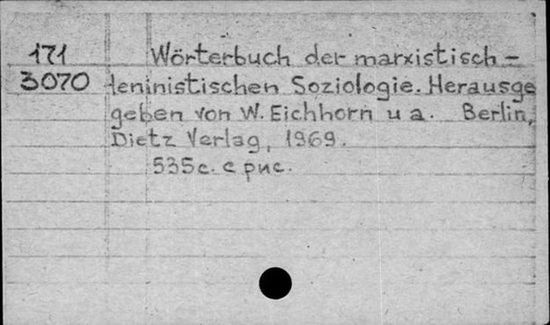 171 Wörterbuch der marxistisch-
3070 leninistischen Soziologie. Herausge
geben von W. Eichhorn u a. Berlin,
Dietz Verlag, 1969.
535 с. с рис.